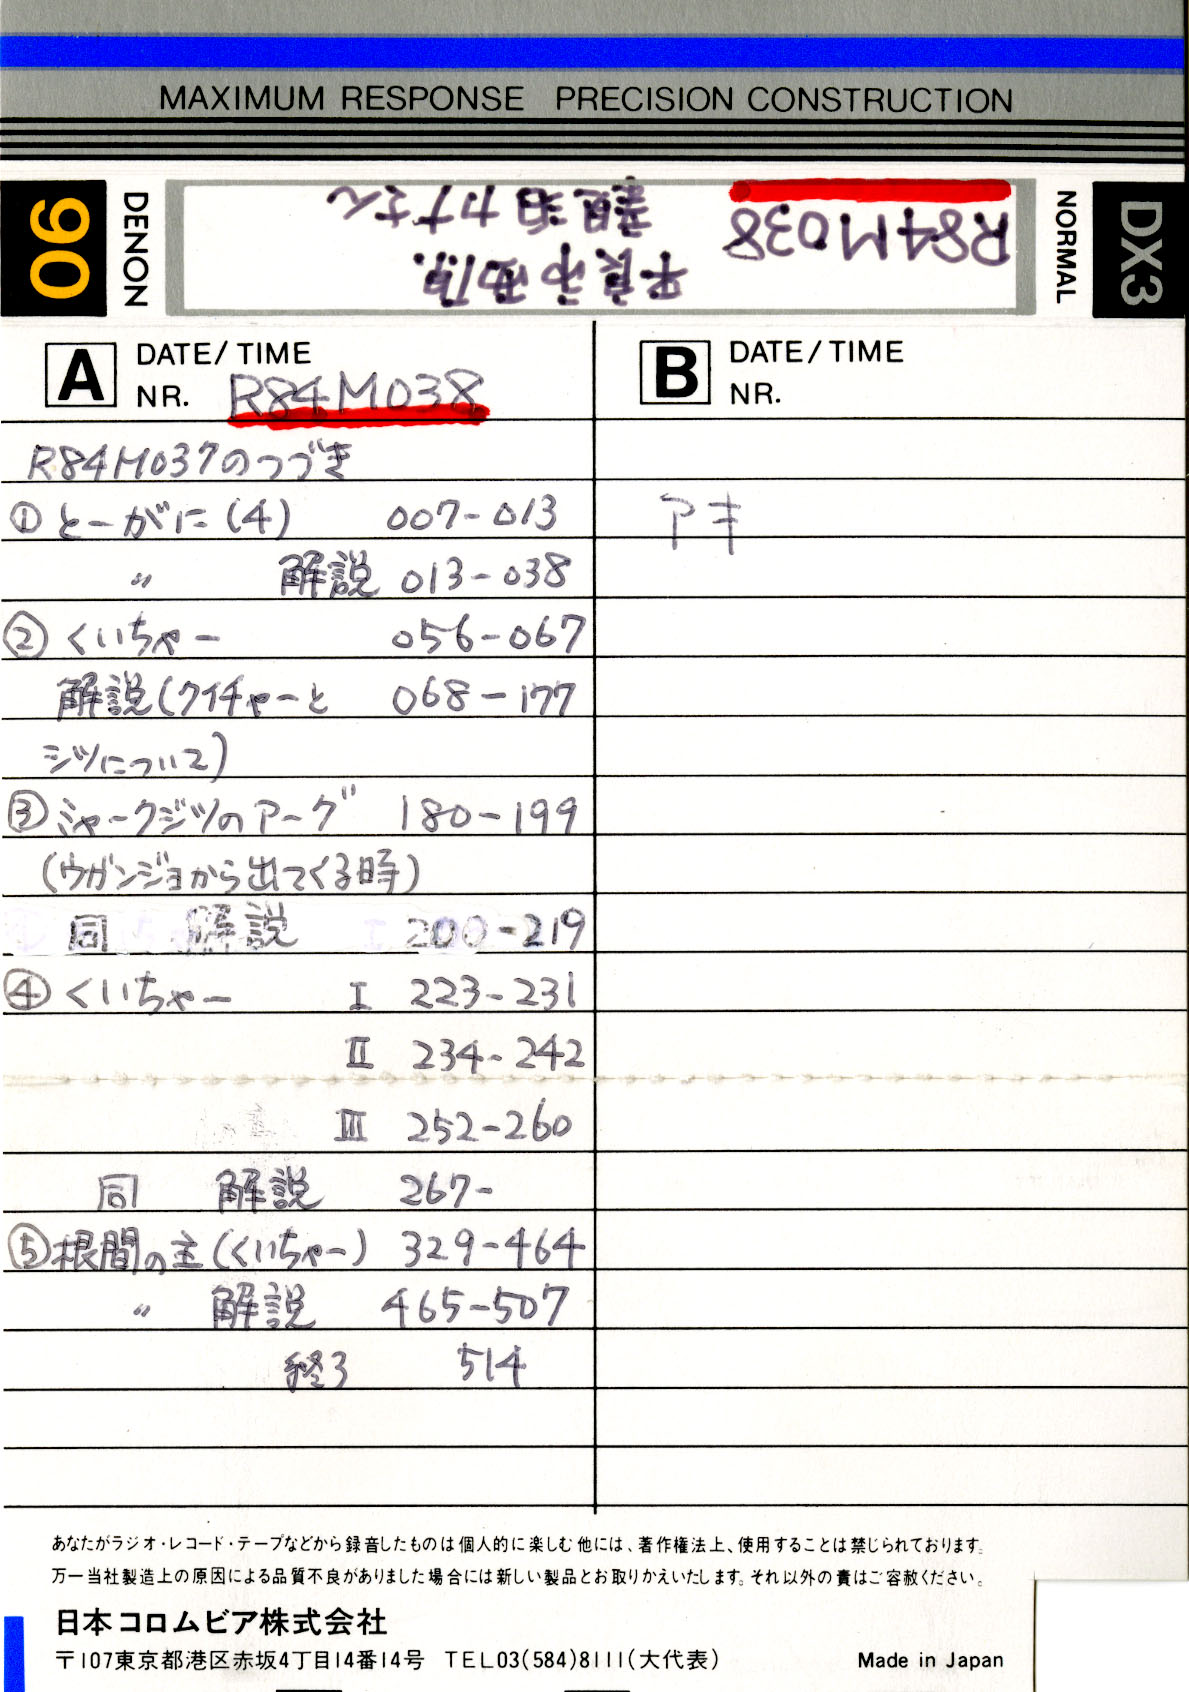 MAXIMUM RESPONSE PRECISION CONSTRUCTION
90 DENON
R84M038
平良市西原.
カナさん
NORMAL DX3
A DATE/TIME
NR. R84M038
R84M037のつづき
① とーがに(4) 007-013
〃 解説 013-038
② くいちゃー 056-067
解説(クイチャーと 068-177
ジツについて)
③ ミャークジツのアーグ 180-199
(ウガンジョから出てくる時)
同 解説 200-219
④ くいちゃー Ⅰ 223-231
Ⅱ 234-242
Ⅲ 252-260
同 解説 267-
⑤ 根間の主(くいちゃー) 329-464
〃 解説 465-507
終了 514
B DATE/TIME
NR.
アキ
あなたがラジオ・レコード・テープなどから録音したものは個人的に楽しむ他には、著作権法上、使用することは禁じられております。
万一当社製造上の原因による品質不良がありました場合には新しい製品とお取りかえいたします。それ以外の責はご容赦ください。
日本コロムビア株式会社
〒107東京都港区赤坂4丁目14番14号 TEL03(584)8111(大代表) Made in Japan